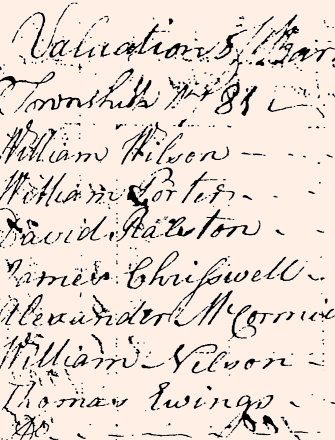 Valuation
Township No 81
William Wilson
William Porter
David Ralston
James Chrisswell
Alexander McCormic
William Nelson
Thomas Ewings